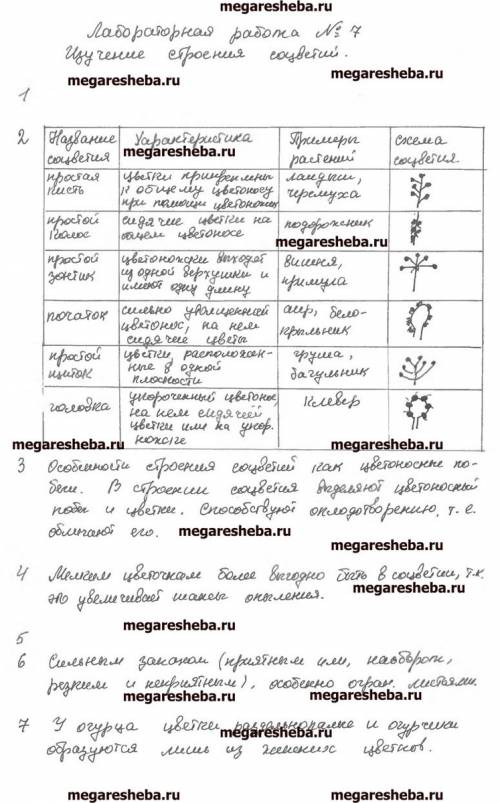 megaresheba.ru
Лабораторная работа № 7
Изучение строения соцветий.
megaresheba.ru megaresheba.ru
1
2 Название соцветия Характеристика Примеры растений схема соцветия.
megaresheba.ru
простая кисть цветки прикреплены к общему цветоносу при помощи цветоножек ландыш, черемуха
простой колос сидячие цветки на общем цветоносе подорожник
megaresheba.ru
простой зонтик цветоножки выходят из одной верхушки и имеют одну длину вишня, примула
початок сильно утолщенный цветонос, на нем сидячие цветы аир, белокрыльник
простой щиток цветки, расположенные в одной плоскости груша, багульник
головка укороченный цветонос, на нем сидячей цветки или на укор. ножке клевер
megaresheba.ru megaresheba.ru
3 Особенности строения соцветий как цветоносные по-
беги. В строении соцветия выделяют цветоносный
побег и цветки. Способствуют оплодотворению, т.е.
облегчают его. megaresheba.ru megaresheba.ru
4 Мелким цветочкам более выгодно быть в соцветии, т.к.
это увеличивает шансы опыления. megaresheba.ru
megaresheba.ru
5
6 Сильным запахом (приятным или, наоборот,
резким и неприятным), особенно огран. листьями.
megaresheba.ru megaresheba.ru
7 У огурца цветки раздельнополые и огурчики
megaresheba.ru
образуются лишь из женских цветков.
megaresheba.ru megaresheba.ru